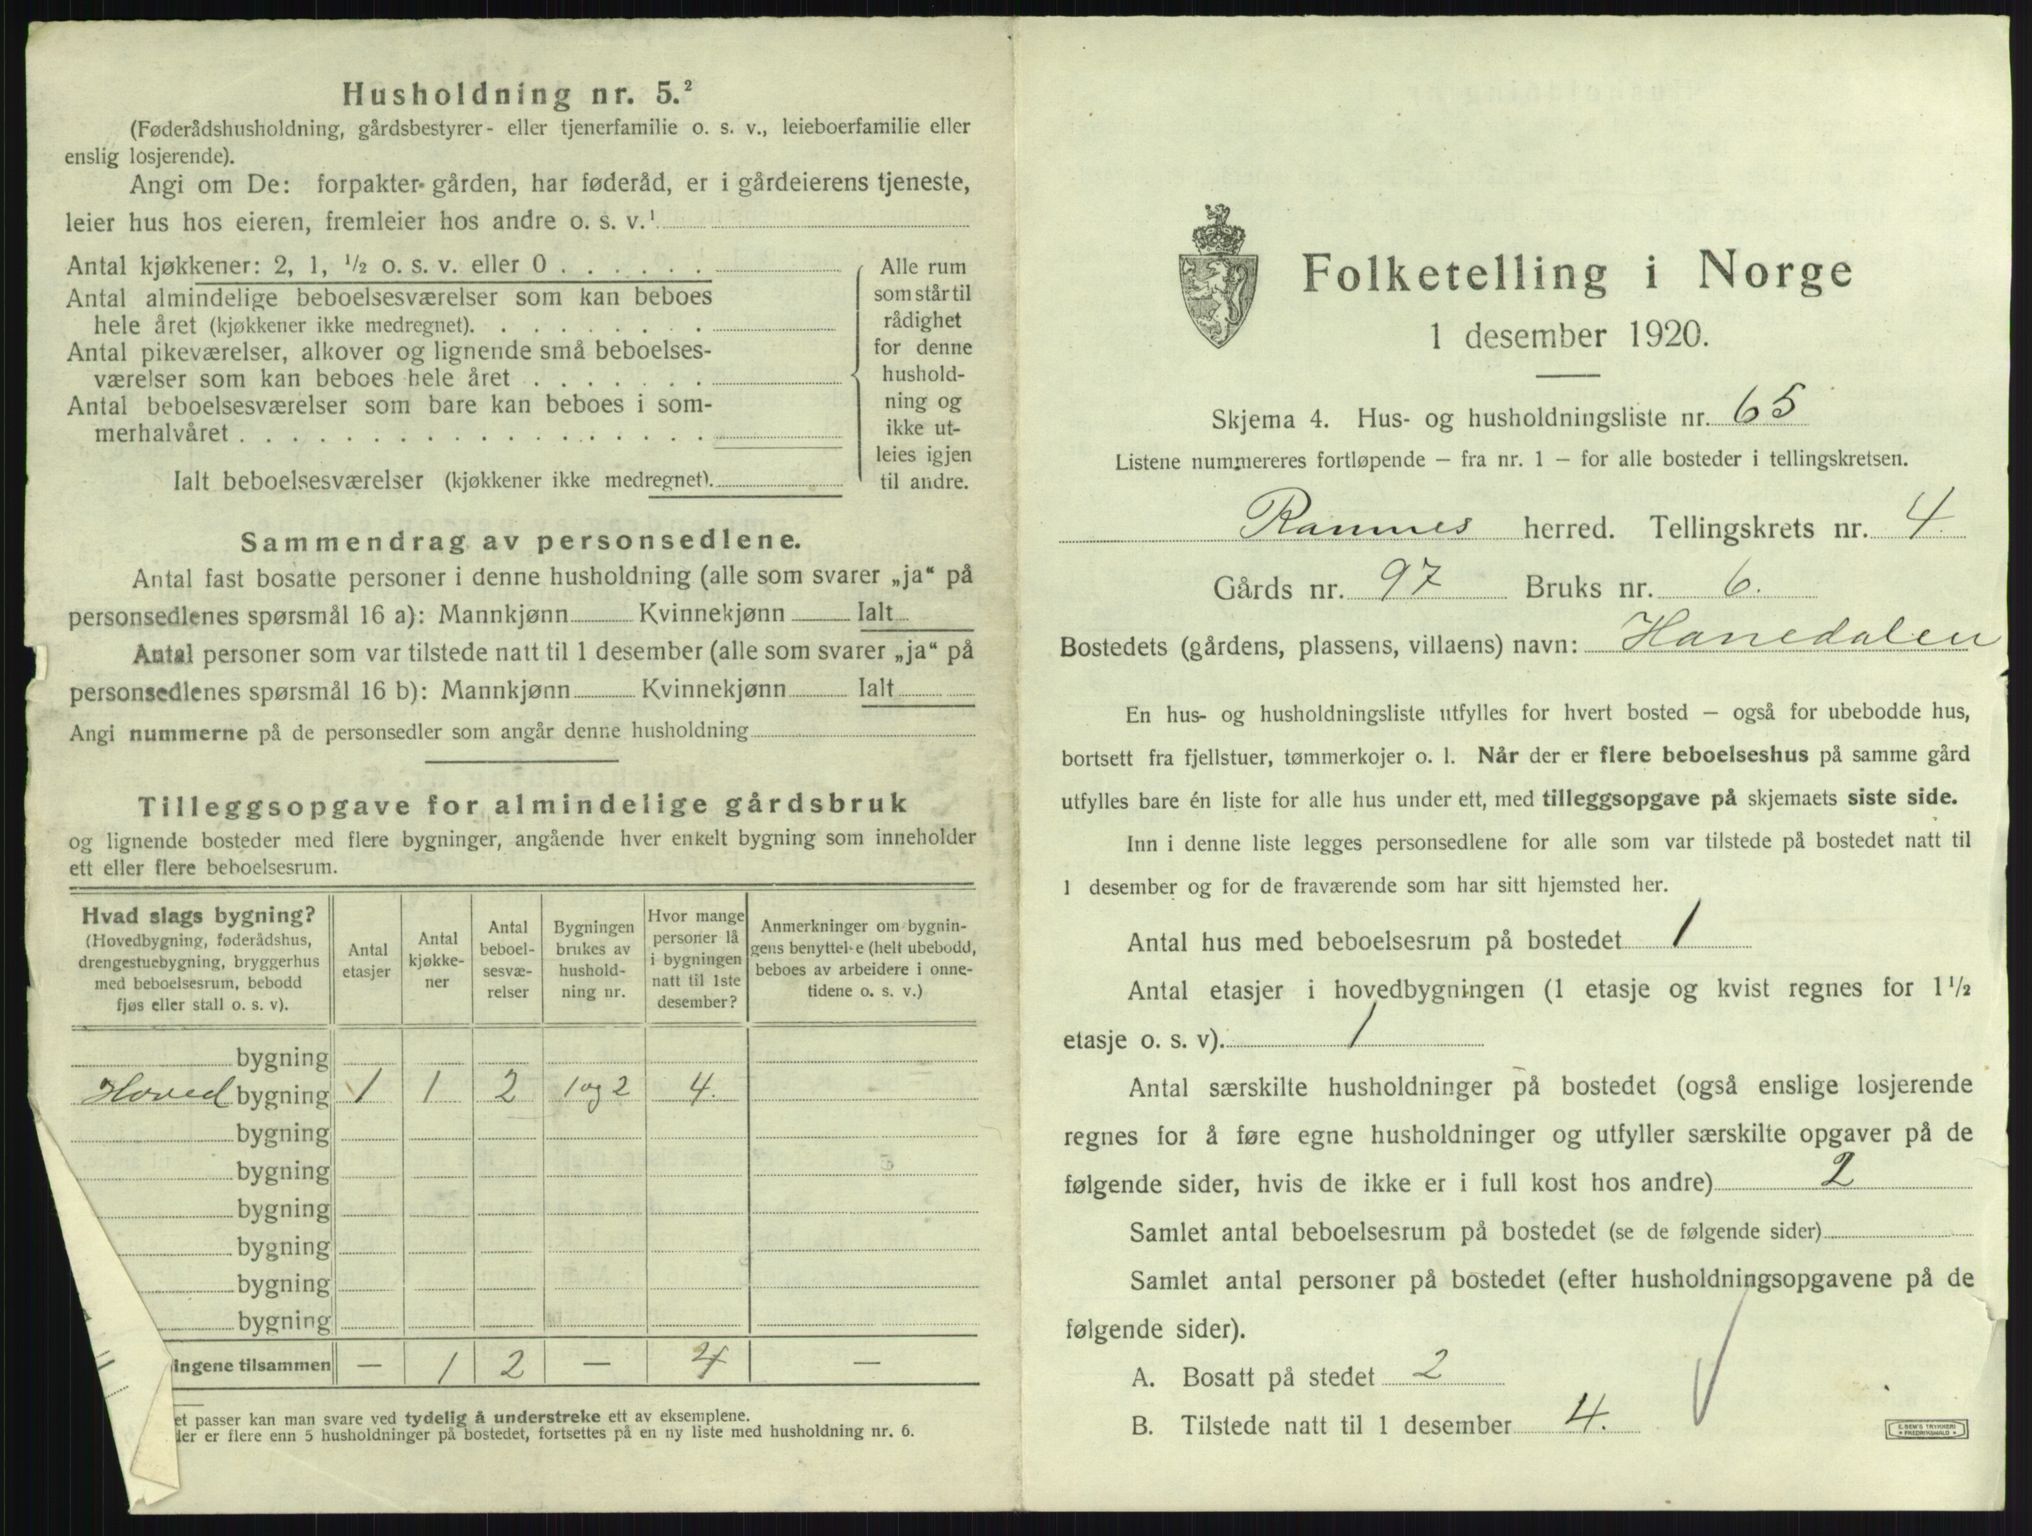 Husholdning nr. 5.²
(Føderådshusholdning, gårdsbestyrer- eller tjenerfamilie o. s. v., leieboerfamilie eller
enslig losjerende).
Angi om De: forpakter gården, har føderåd, er i gårdeierens tjeneste,
leier hus hos eieren, fremleier hos andre o. s. v.¹
Antal kjøkkener: 2, 1, ½ o. s. v. eller 0
Antal almindelige beboelsesværelser som kan beboes
hele året (kjøkkener ikke medregnet).
Antal pikeværelser, alkover og lignende små beboelses-
værelser som kan beboes hele året
Antal beboelsesværelser som bare kan beboes i som-
merhalvåret
Ialt beboelsesværelser (kjøkkener ikke medregnet).
Alle rum
som står til
rådighet
for denne
hushold-
ning og
ikke ut-
leies igjen
til andre.
Sammendrag av personsedlene.
Antal fast bosatte personer i denne husholdning (alle som svarer „ja“ på
personsedlenes spørsmål 16 a): Mannkjønn Kvinnekjønn Ialt
Antal personer som var tilstede natt til 1 desember (alle som svarer „ja“ på
personsedlenes spørsmål 16 b): Mannkjønn Kvinnekjønn Ialt
Angi nummerne på de personsedler som angår denne husholdning
Tilleggsopgave for almindelige gårdsbruk
og lignende bosteder med flere bygninger, angående hver enkelt bygning som inneholder
ett eller flere beboelsesrum.
Hvad slags bygning?
(Hovedbygning, føderådshus,
drengestuebygning, bryggerhus
med beboelsesrum, bebodd
fjøs eller stall o. s. v).
Antal
etasjer
Antal
kjøkke-
ner
Antal
beboel-
sesvæ-
relser
Bygningen
brukes av
hushold-
ning nr.
Hvor mange
personer lå
i bygningen
natt til 1ste
desember?
Anmerkninger om bygnin-
gens benyttelse (helt ubebodd,
beboes av arbeidere i onne-
tidene o. s. v.)
bygning
Hoved bygning 1 1 2 1 og 2 4.
bygning
bygning
bygning
bygning
bygning
bygning
ingene tilsammen — 1 2 — 4 —
et passer kan man svare ved tydelig å understreke ett av eksemplene.
der er flere enn 5 husholdninger på bostedet, fortsettes på en ny liste med husholdning nr. 6.
Folketelling i Norge
1 desember 1920.
Skjema 4. Hus- og husholdningsliste nr. 65
Listene nummereres fortløpende – fra nr. 1 – for alle bosteder i tellingskretsen.
Ramnes herred. Tellingskrets nr. 4.
Gårds nr. 97 Bruks nr. 6.
Bostedets (gårdens, plassens, villaens) navn: Hanedalen
En hus- og husholdningsliste utfylles for hvert bosted – også for ubebodde hus,
bortsett fra fjellstuer, tømmerkojer o. l. Når der er flere beboelseshus på samme gård
utfylles bare én liste for alle hus under ett, med tilleggsopgave på skjemaets siste side.
Inn i denne liste legges personsedlene for alle som var tilstede på bostedet natt til
1 desember og for de fraværende som har sitt hjemsted her.
Antal hus med beboelsesrum på bostedet 1
Antal etasjer i hovedbygningen (1 etasje og kvist regnes for 1½
etasje o. s. v). 1
Antal særskilte husholdninger på bostedet (også enslige losjerende
regnes for å føre egne husholdninger og utfyller særskilte opgaver på de
følgende sider, hvis de ikke er i full kost hos andre) 2
Samlet antal beboelsesrum på bostedet (se de følgende sider)
Samlet antal personer på bostedet (efter husholdningsopgavene på de
følgende sider).
A. Bosatt på stedet 2
B. Tilstede natt til 1 desember 4.
E. SEM'S TRYKKERI
FREDRIKSHALD